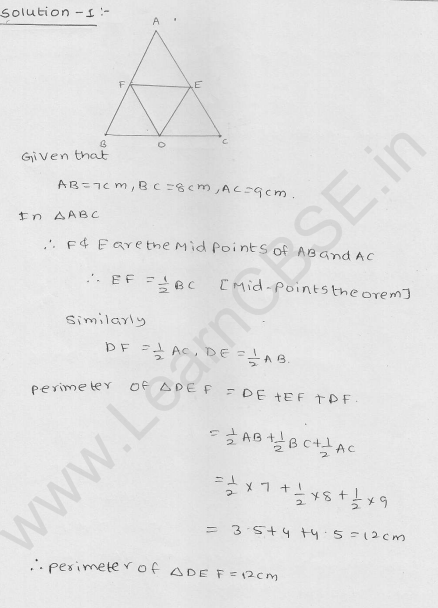 Solution -1:-
A
F E
B D C
Given that
AB=7cm, BC=8cm, AC=9cm.
In △ABC
∴ F & E are the Mid points of AB and AC
∴ EF = 1/2 BC [Mid-points theorem]
Similarly
DF = 1/2 AC, DE = 1/2 AB.
perimeter of △DEF = DE +EF +DF.
= 1/2 AB + 1/2 BC + 1/2 AC
= 1/2 × 7 + 1/2 × 8 + 1/2 × 9
= 3.5+4+4.5=12cm
∴ perimeter of △DEF=12cm
www.LearnCBSE.in